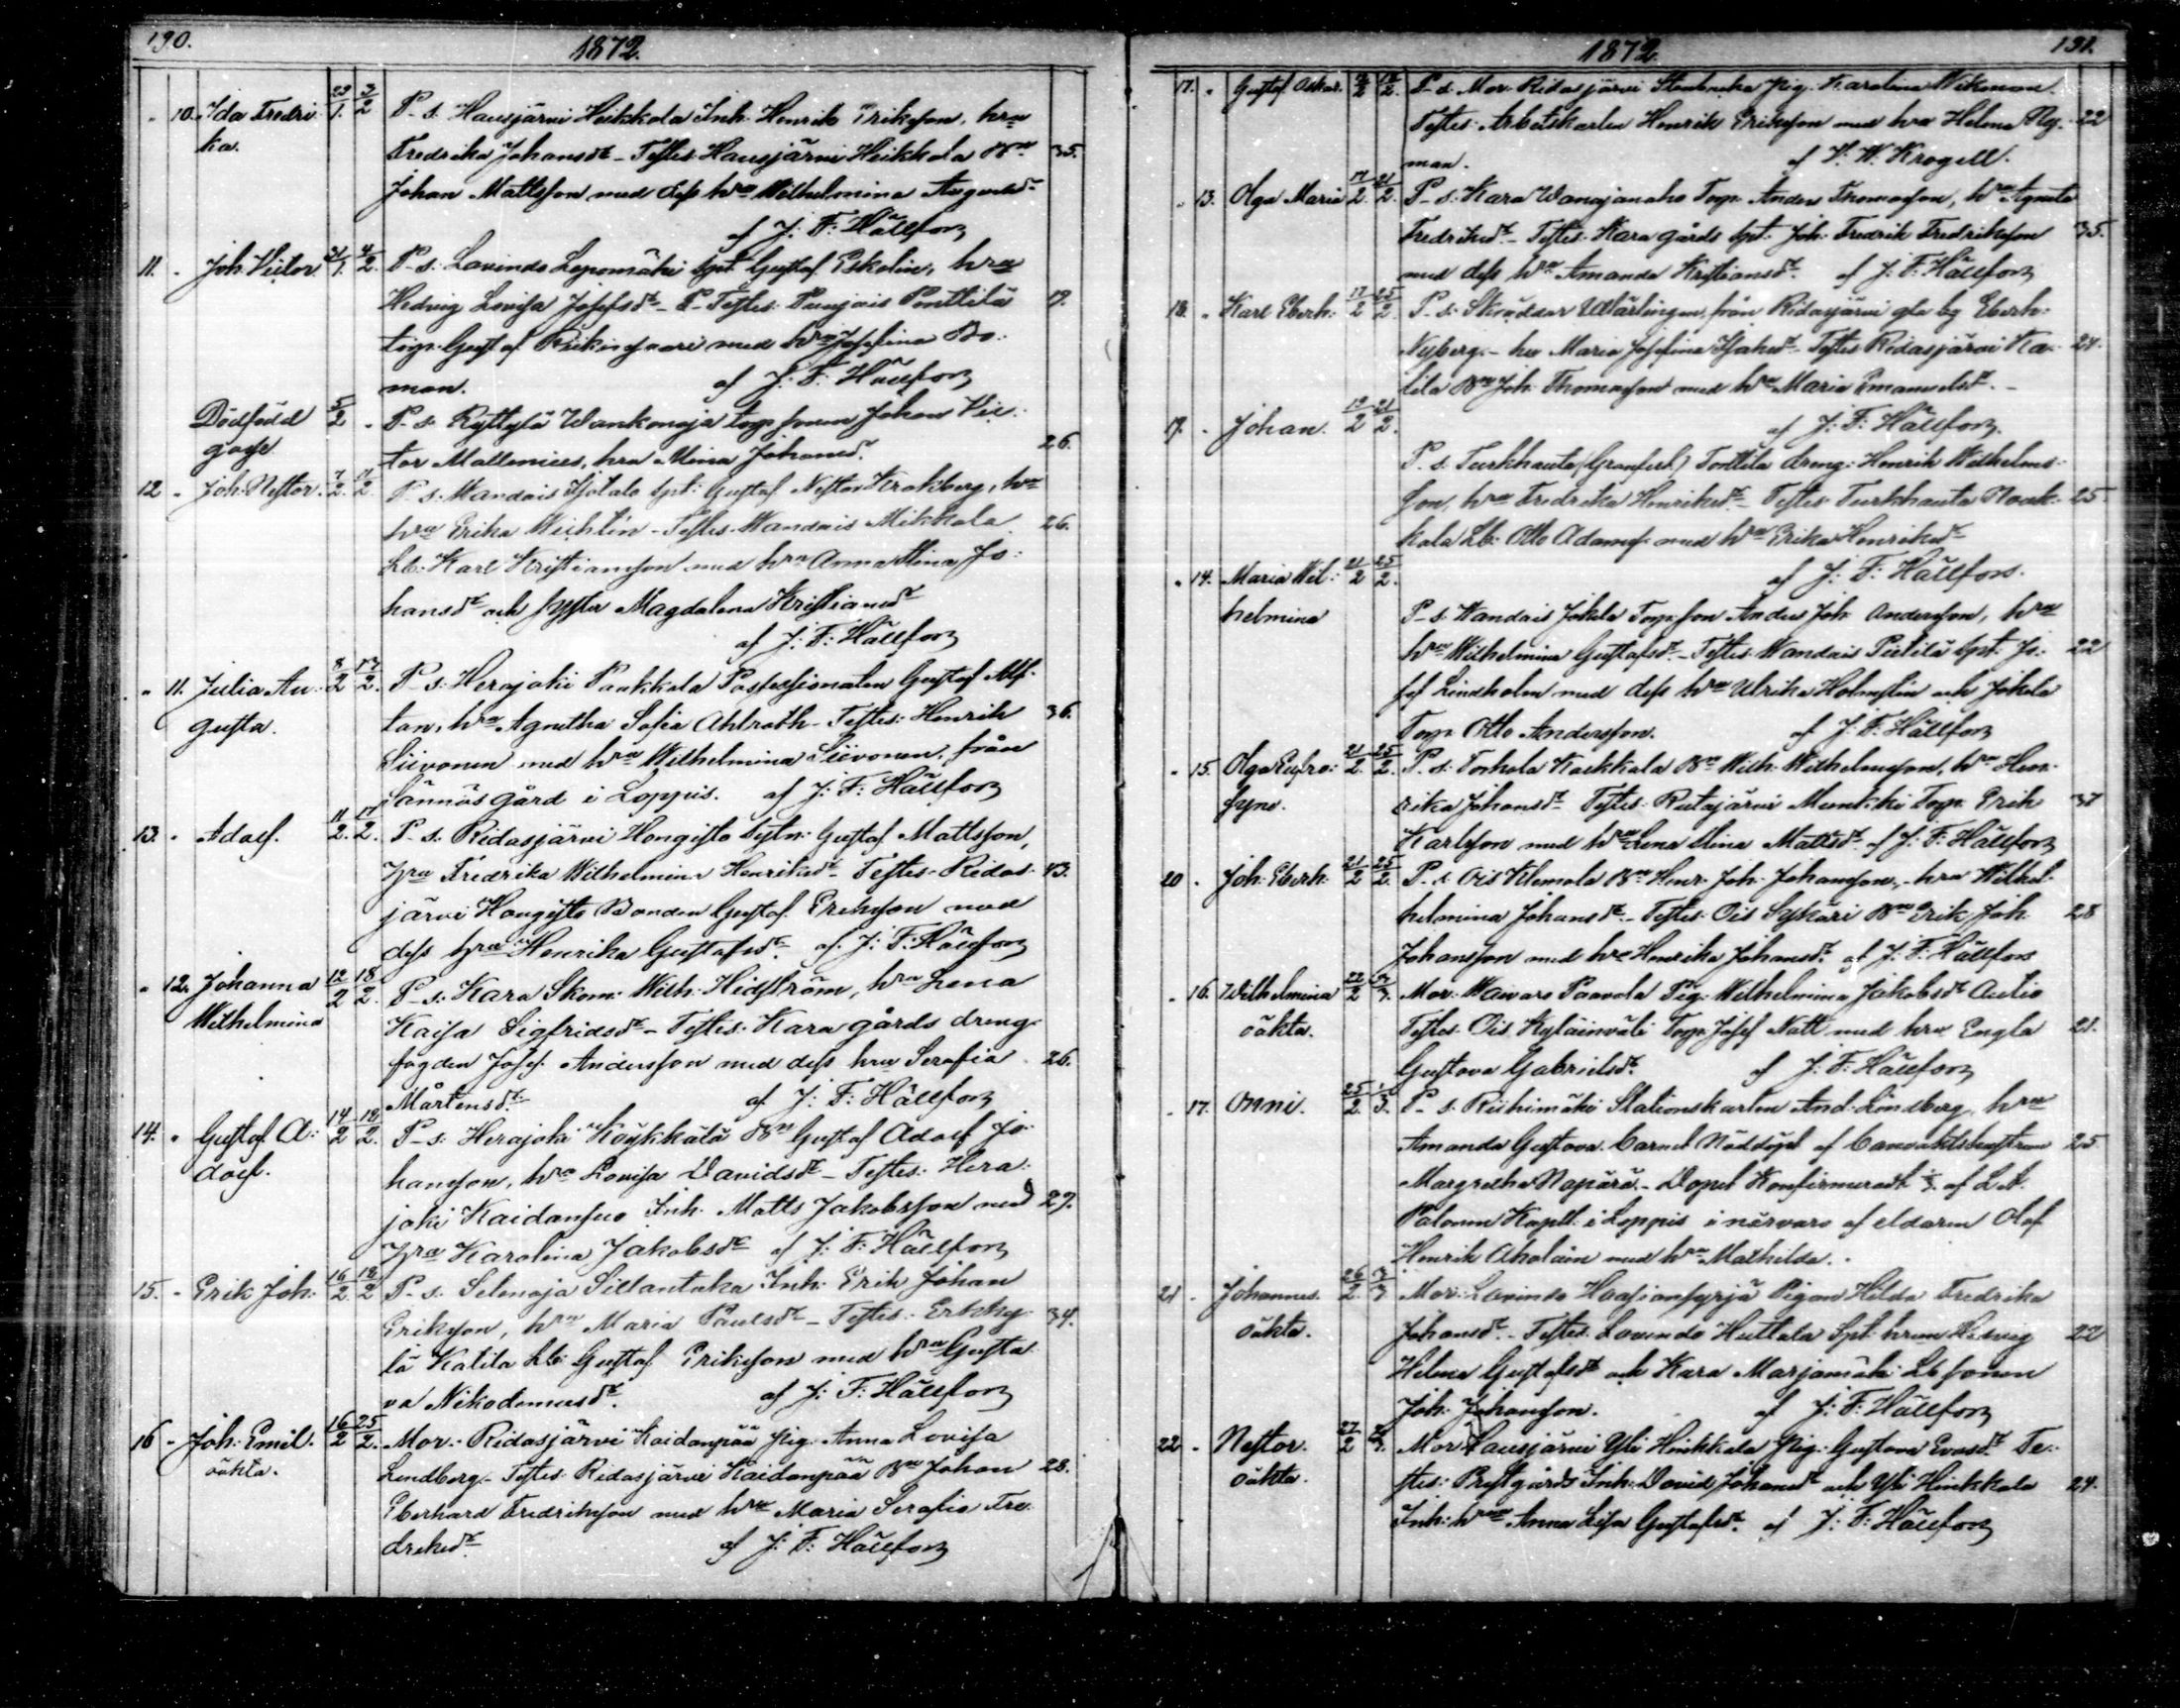 190.
1872.
" 10. Ida Fredri 29/1. 3/2 P. s. Hausjärvi Heikkola Inh. Henrik Eriksson, hru
ka.
Fredrika Johansdr - Testes Hausjärvi Heikkola Bn 35.
Johan Mattsson med dess hru Wilhelmina Augustsdr
af J: F: Hällfors
11. " Joh. Victor 31/1. 4/2. P. s. Lavindo Leponmäki spt Gustaf Eskolin, hru
Hedvig Lovisa Josefsdr - Testes Punjais Penttilä 19.
torp. Gustaf med hru Josefina Bo:
man. af J: F: Hällfors
Dödfödd 5/2 - P. s. Ryttylä Wankonoja torp sonen Johan Vic:
gosse tor Mallenius, hru Mina Johansdr. 26.
12 " Joh. Nestor. 7/2. 11/2 P. s. Wandais Isotalo spt: Gustaf Nestor Krokberg, hru
hru Erika Wichlin - Testes Wandais Mikkola 26.
Lb: Karl Kristiansson med hru Anna Stina Jo:
hansdr och syster Magdalena Kristiansdr
af J: F: Hällfors
" 11. Julia Au: 8/2 17/2. P. s. Herajoki Paukkola Possessionaten Gustaf Alf.
gusta. tan, hru Agnetha Sofia Ahlroth - Testes: Henrik 36.
Siivonen med hru Wilhelmina Siivonen, från
Sännäs gård i Loppis. af J: F: Hällfors
13. " Adolf. 11/2. 17/2. P. s. Ridasjärvi Hongisto Sytn: Gustaf Mattsson,
hru Fredrika Wilhelmina Henriksdr - Testes Ridas- 43.
järvi Hongisto Bonden Gustaf Eriksson med
dess hru Henrika Gustafsdr. af. J: F: Hällfors
" 12. Johanna 12/2 18/2. P. s: Kara Skom: Wilh: Hidström, hru Lena
Wilhelmina Kaisa Sigfridsdr - Testes. Kara gårds dreng
fogden Josef. Andersson med dess hru Serafia 26.
Mårtensdr. af J: F: Hällfors
14. " Gustaf A: 14/2 18/2. P. s: Herajoki Köykkälä Bn Gustaf Adolf Jo:
dolf. hansson, hru Lovisa Davidsdr - Testes. Hera:
joki Kaidansuo Inh: Matts Jakobsson med 29.
hru Karolina Jakobsdr af J: F: Hällfors
15. " Erik Joh: 16/2. 18/2 P. s. Selenoja Sillantaka Inh: Erik Johan
Eriksson, hru Maria Paulsdr - Testes: Erkky- 34.
lä Katila Lb: Gustaf Eriksson med hru Gusta
va Nikodemusdr. af J: F: Hällfors
16 " Joh: Emil. 16/2 25/2. Mor: Ridasjärvi Kaidanpää pig. Anna Lovisa
oäkta. Lindberg - Testes: Ridasjärvi Kaidanpää Bn Johan 28.
Eberhard Fredriksson med hru Maria Serafia Fre:
driksdr. af J: F: Hällfors
1872
191.
17. " Gustaf Oskar. P. s. Mor. Ridasjärvi Stenbacka pig. Karolina Wikman.
Testes: Arbetskarlen Henrik Eriksson med hru Helena Ny- 22
man. af V. W. Krogell.
" 13. Olga Maria 17/2. 21/2. P. s: Kara Wanajanaho Torp. Anders Thomasson, hru Agneta
Fredriksdr - Testes: Kara gårds spt: Joh: Fredrik Fredriksson 35.
med dess hru Amanda Kristiansdr. af J: F: Hällfors
18. " Karl Eberh: 17/2 25/2. P. s: Skräddar från Ridasjärvi Eberh:
Nyberg - hru Maria Josefina Isaksdr - Testes Ridasjärvi Ka- 24.
tila Bn Joh: Thomasson med hru Maria Emanuelsdr. -
19. " Johan. 19/2 21/2. af J: F: Hällfors.
P. s. Turkhauta (Granfurt) Tonttila dreng: Henrik Wilhelms-
son, hru Fredrika Henriksdr - Testes: Turkhauta 25.
kala Lb: Otto Adamss. med hru Erika Henriksdr
" 14. Maria Wil: 21/2 25/2. af J: F: Hällfors.
helmina P. s. Wandais Jokela Torp. son Anders Joh. Andersson, hru
hru Wilhelmina Gustafsdr - Testes Wandais spt: Jo: 22
sef Lindholm med dess hru Ulrika Holmstén och Jokela
Torp. Otto Andersson. af J: F: Hällfors
" 15. Olga Eufro: 21/2. 25/2. P. s: Torhola Kaekkala Bn Wilh: Wilhelmsson, hru Hen-
syne. rika Johansdr Testes: Rutajärvi Munkki Torp. Erik 37
Karlsson med hru Lena Stina Mattsdr. af J: F: Hällfors
20 " Joh: Eberh. 21/2 25/2. P. s. Ois Klemola Bn Henr: Joh: Johansson, - hru Wilhel-
helmina Johansdr - Testes: Ois Sykäri Bn Erik Joh: 28
Johansson med hru Henrika Johansdr. af J: F: Hällfors
" 16. Wilhelmina 22/2 3/3. Mor: Waivaro Paavola Pig: Wilhelmina Jakobsdr Autio
oäkta. Testes. Ois Kyläinväli Torp. Josef Natt med hru Engla 21.
Gustava Gabrielsdr. af J: F: Hällfors
" 17. Onni. 25/2. 1/3. P. s: Riihimäki Stationskarlen And: Lindberg, hru
Amanda Gustava. Barnet Nöddöpt af 25
Margretha Napärä. - Dopet Konfirmeradt 1/3. af L. A.
Palonen Kapell. i Loppis i närvaro af eldaren Olof
Henrik Aholain med hru Mathilda. -
21 " Johannes. 26/2. 3/3 Mor: Lavindo Haasiansyrjä Pigan Hilda Fredrika
oäkta. Johansdr. - Testes. Lavindo Huttala Spt: hrun Hedvig 22
Helena Gustafsdr och Kara Marjamäki Lb sonen
Joh: Johansson. af J: F: Hällfors
22 " Nestor. 27/2 3/3. Mor. Hausjärvi Yli Hinkkala Pig: Gustava Evasdr. Te:
oäkta. stes: Prestgårds Inh: David Johansdr och Yli Hinkkala 24.
Inh: hru Anna Lisa Gustafsdr. af J: F: Hällfors